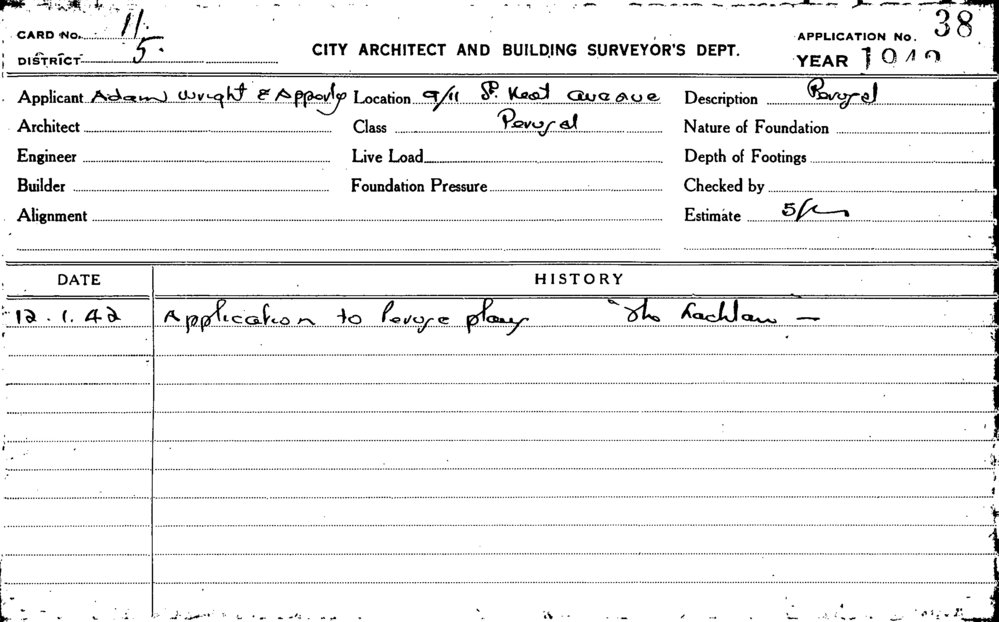 CARD No. 11.
DISTRICT 5.
CITY ARCHITECT AND BUILDING SURVEYOR'S DEPT.
APPLICATION No. 38
YEAR 1942
Applicant Adam Wright & Apperly Location 9/11 St. Neot Avenue Description Perusal
Architect Class Perusal Nature of Foundation
Engineer Live Load Depth of Footings
Builder Foundation Pressure Checked by
Alignment Estimate 5/
DATE HISTORY
12.1.42 Application to Peruse plans "The Lachlan" —